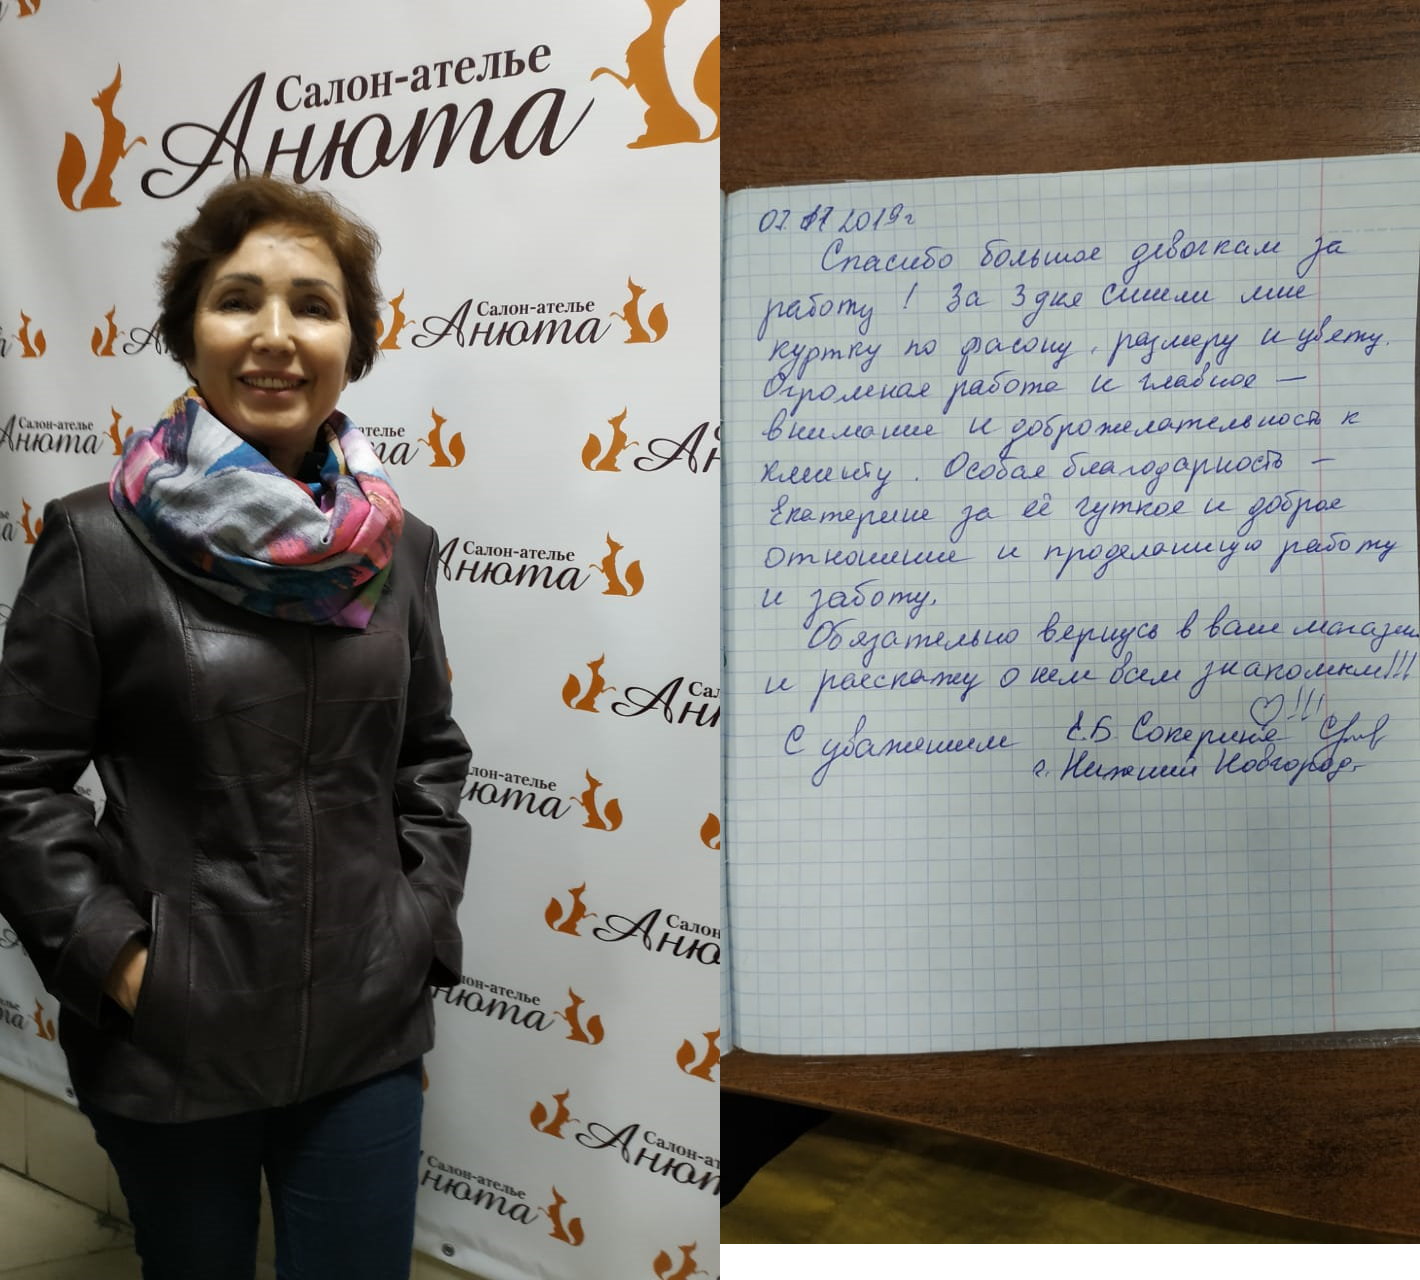 Салон-ателье
Анюта
Салон-ателье
Анюта
Салон-ателье
Анюта
Салон-ателье
Анюта
ателье
та
Салон-ателье
Анюта
Сал
Анн
лон-ателье
нюта
Салон
Аню
лон-ателье
нюта
Салон-ат
Анют
Салон-ателье
нюта
07. 11 2019г
Спасибо большое девочкам за
работу! За 3 дня сшили мне
куртку по фасону, размеру и цвету.
Огромная работа и главное –
внимание и доброжелательность к
клиенту. Особая благодарность –
Екатерине за её чуткое и доброе
отношение и проделанную работу
и заботу.
Обязательно вернусь в ваш магазин
и расскажу о нем всем знакомым!!!
!!!
С уважением Е.Б. Сокерина
г. Нижний Новгород.